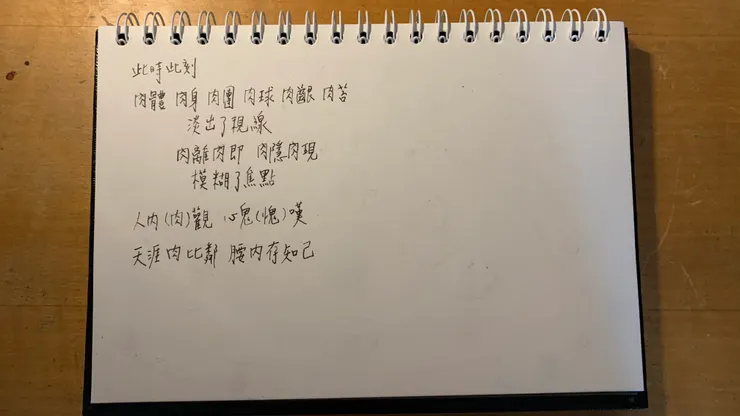 此時此刻
肉體 肉身 肉團 肉球 肉餵 肉苔
淡出了視線
肉離肉即 肉隱肉現
模糊了焦點
人內(肉)觀 心鬼(愧)嘆
天涯肉比鄰 腰內存知己